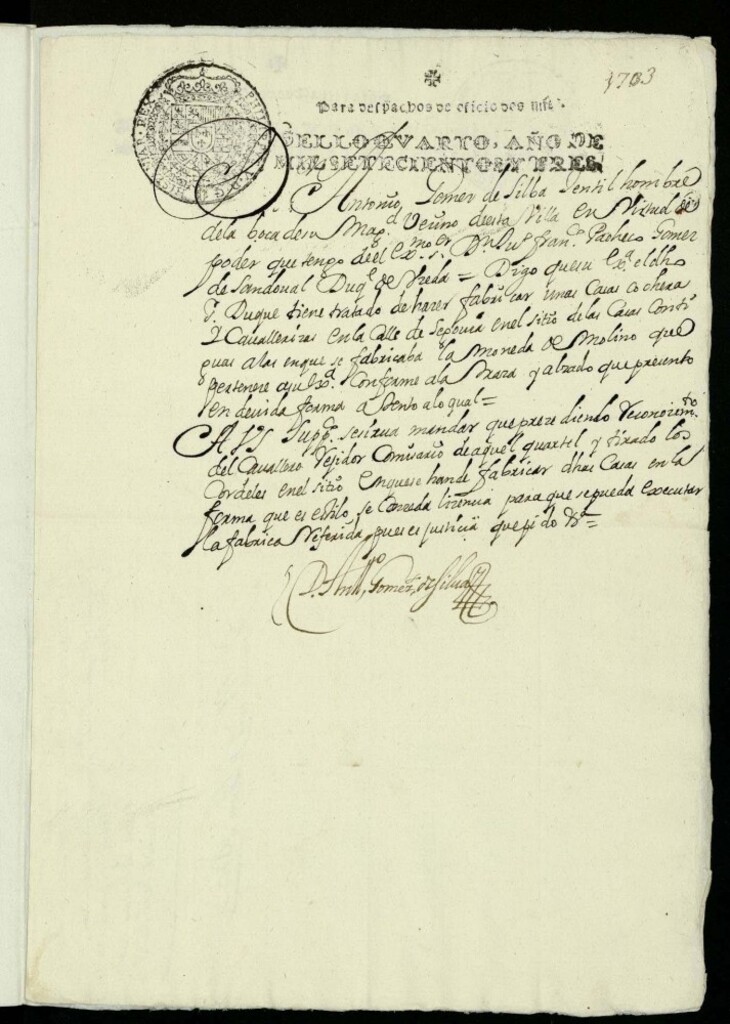 1703
Para despachos de oficio dos mrs.
SELLO QVARTO, AÑO DE
MIL SETECIENTOS Y TRES.
D. Antonio Gomez de Silba Gentil hombre
de la boca de su Magd. Vezino de esta Villa en Virtud de
poder que tengo de el Exmo. Sr. Dn. Juo. Franco. Pacheco Gomez
de Sandoval Duqe. de Uzeda = Digo que su Exa. el dho
Sr. Duque tiene tratado de hazer fabricar unas Casas cochera
y Cavallerizas en la Calle de Segovia en el sitio de las Casas Conti
guas a las en que se fabricaba la Moneda de Molino que
pertenece a su Exa. Conforme a la Traza y alzado que presento
en devida forma atento a lo qual =
A VS Suppco. se sirva mandar que prezediendo Reconocimto.
del Cavallero Rejidor Comisario de aquel quartel y tirado los
Cordeles en el sitio en que se han de fabricar dhas Casas en la
forma que es estilo se Conzeda lizencia para que se pueda executar
la fabrica Referida pues es justicia que pido &a =
D. Anto. Gomez de Silua